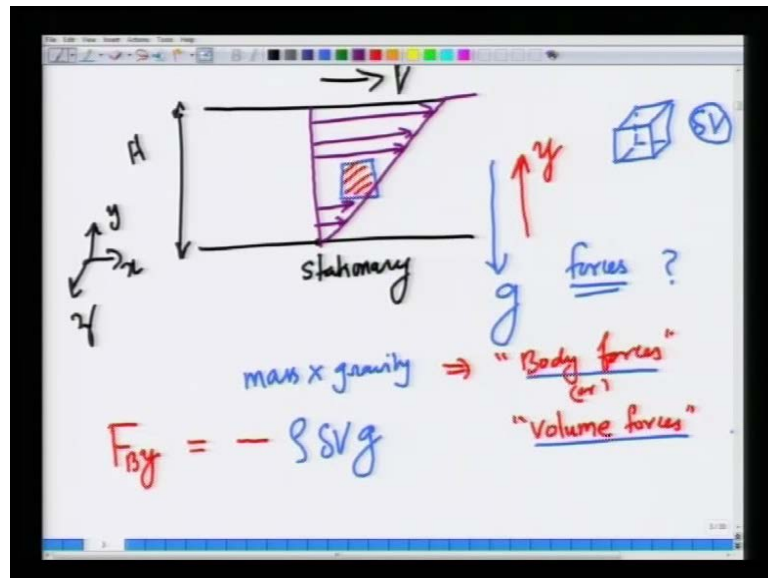 File Edit View Insert Actions Tools Help
→ V
H
δV
y
y
x
z
stationary
g
forces ?
mass x gravity ⇒ "Body forces"
(or)
"Volume forces"
F_By = - ρ δV g